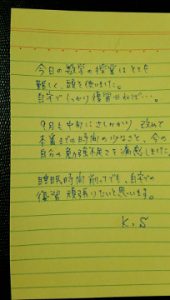 今日の数学の授業はとても
難しく頭を使いました。
自宅でしっかり復習せねば…。
9月も中旬にさしかかり、改めて
本番までの時間の少なさと、今の
自分の勉強不足さを痛感しました。
睡眠時間削ってでも、自宅での
復習頑張りたいと思います。
K.S